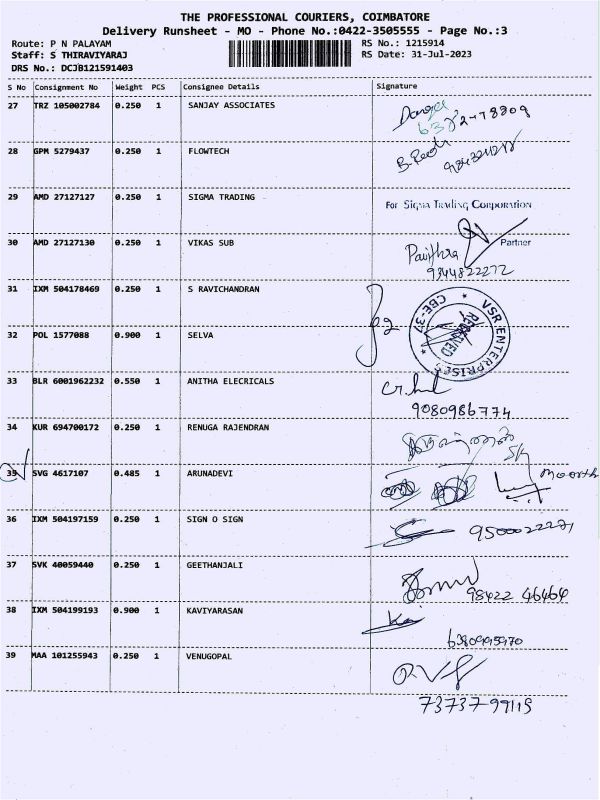 THE PROFESSIONAL COURIERS, COIMBATORE
Delivery Runsheet - MO - Phone No.:0422-3505555 - Page No.:3
Route: P N PALAYAM
Staff: S THIRAVIYARAJ
DRS No.: DCJB121591403
RS No.: 1215914
RS Date: 31-Jul-2023
S No Consignment No Weight PCS Consignee Details Signature
27 TRZ 105002784 0.250 1 SANJAY ASSOCIATES
28 GPM 5279437 0.250 1 FLOWTECH
29 AMD 27127127 0.250 1 SIGMA TRADING
For Sigma Trading Corporation
Partner
30 AMD 27127130 0.250 1 VIKAS SUB
Pavithra
9344822272
31 IXM 504178469 0.250 1 S RAVICHANDRAN
VSR ENTERPRISES
CBE-37
RECEIVED
32 POL 1577088 0.900 1 SELVA
33 BLR 6001962232 0.550 1 ANITHA ELECRICALS
9080986774
34 KUR 694700172 0.250 1 RENUGA RAJENDRAN
35 SVG 4617107 0.485 1 ARUNADEVI
36 IXM 504197159 0.250 1 SIGN O SIGN
9500022271
37 SVK 40059440 0.250 1 GEETHANJALI
98422 46464
38 IXM 504199193 0.900 1 KAVIYARASAN
6380995970
39 MAA 101255943 0.250 1 VENUGOPAL
73737 99115